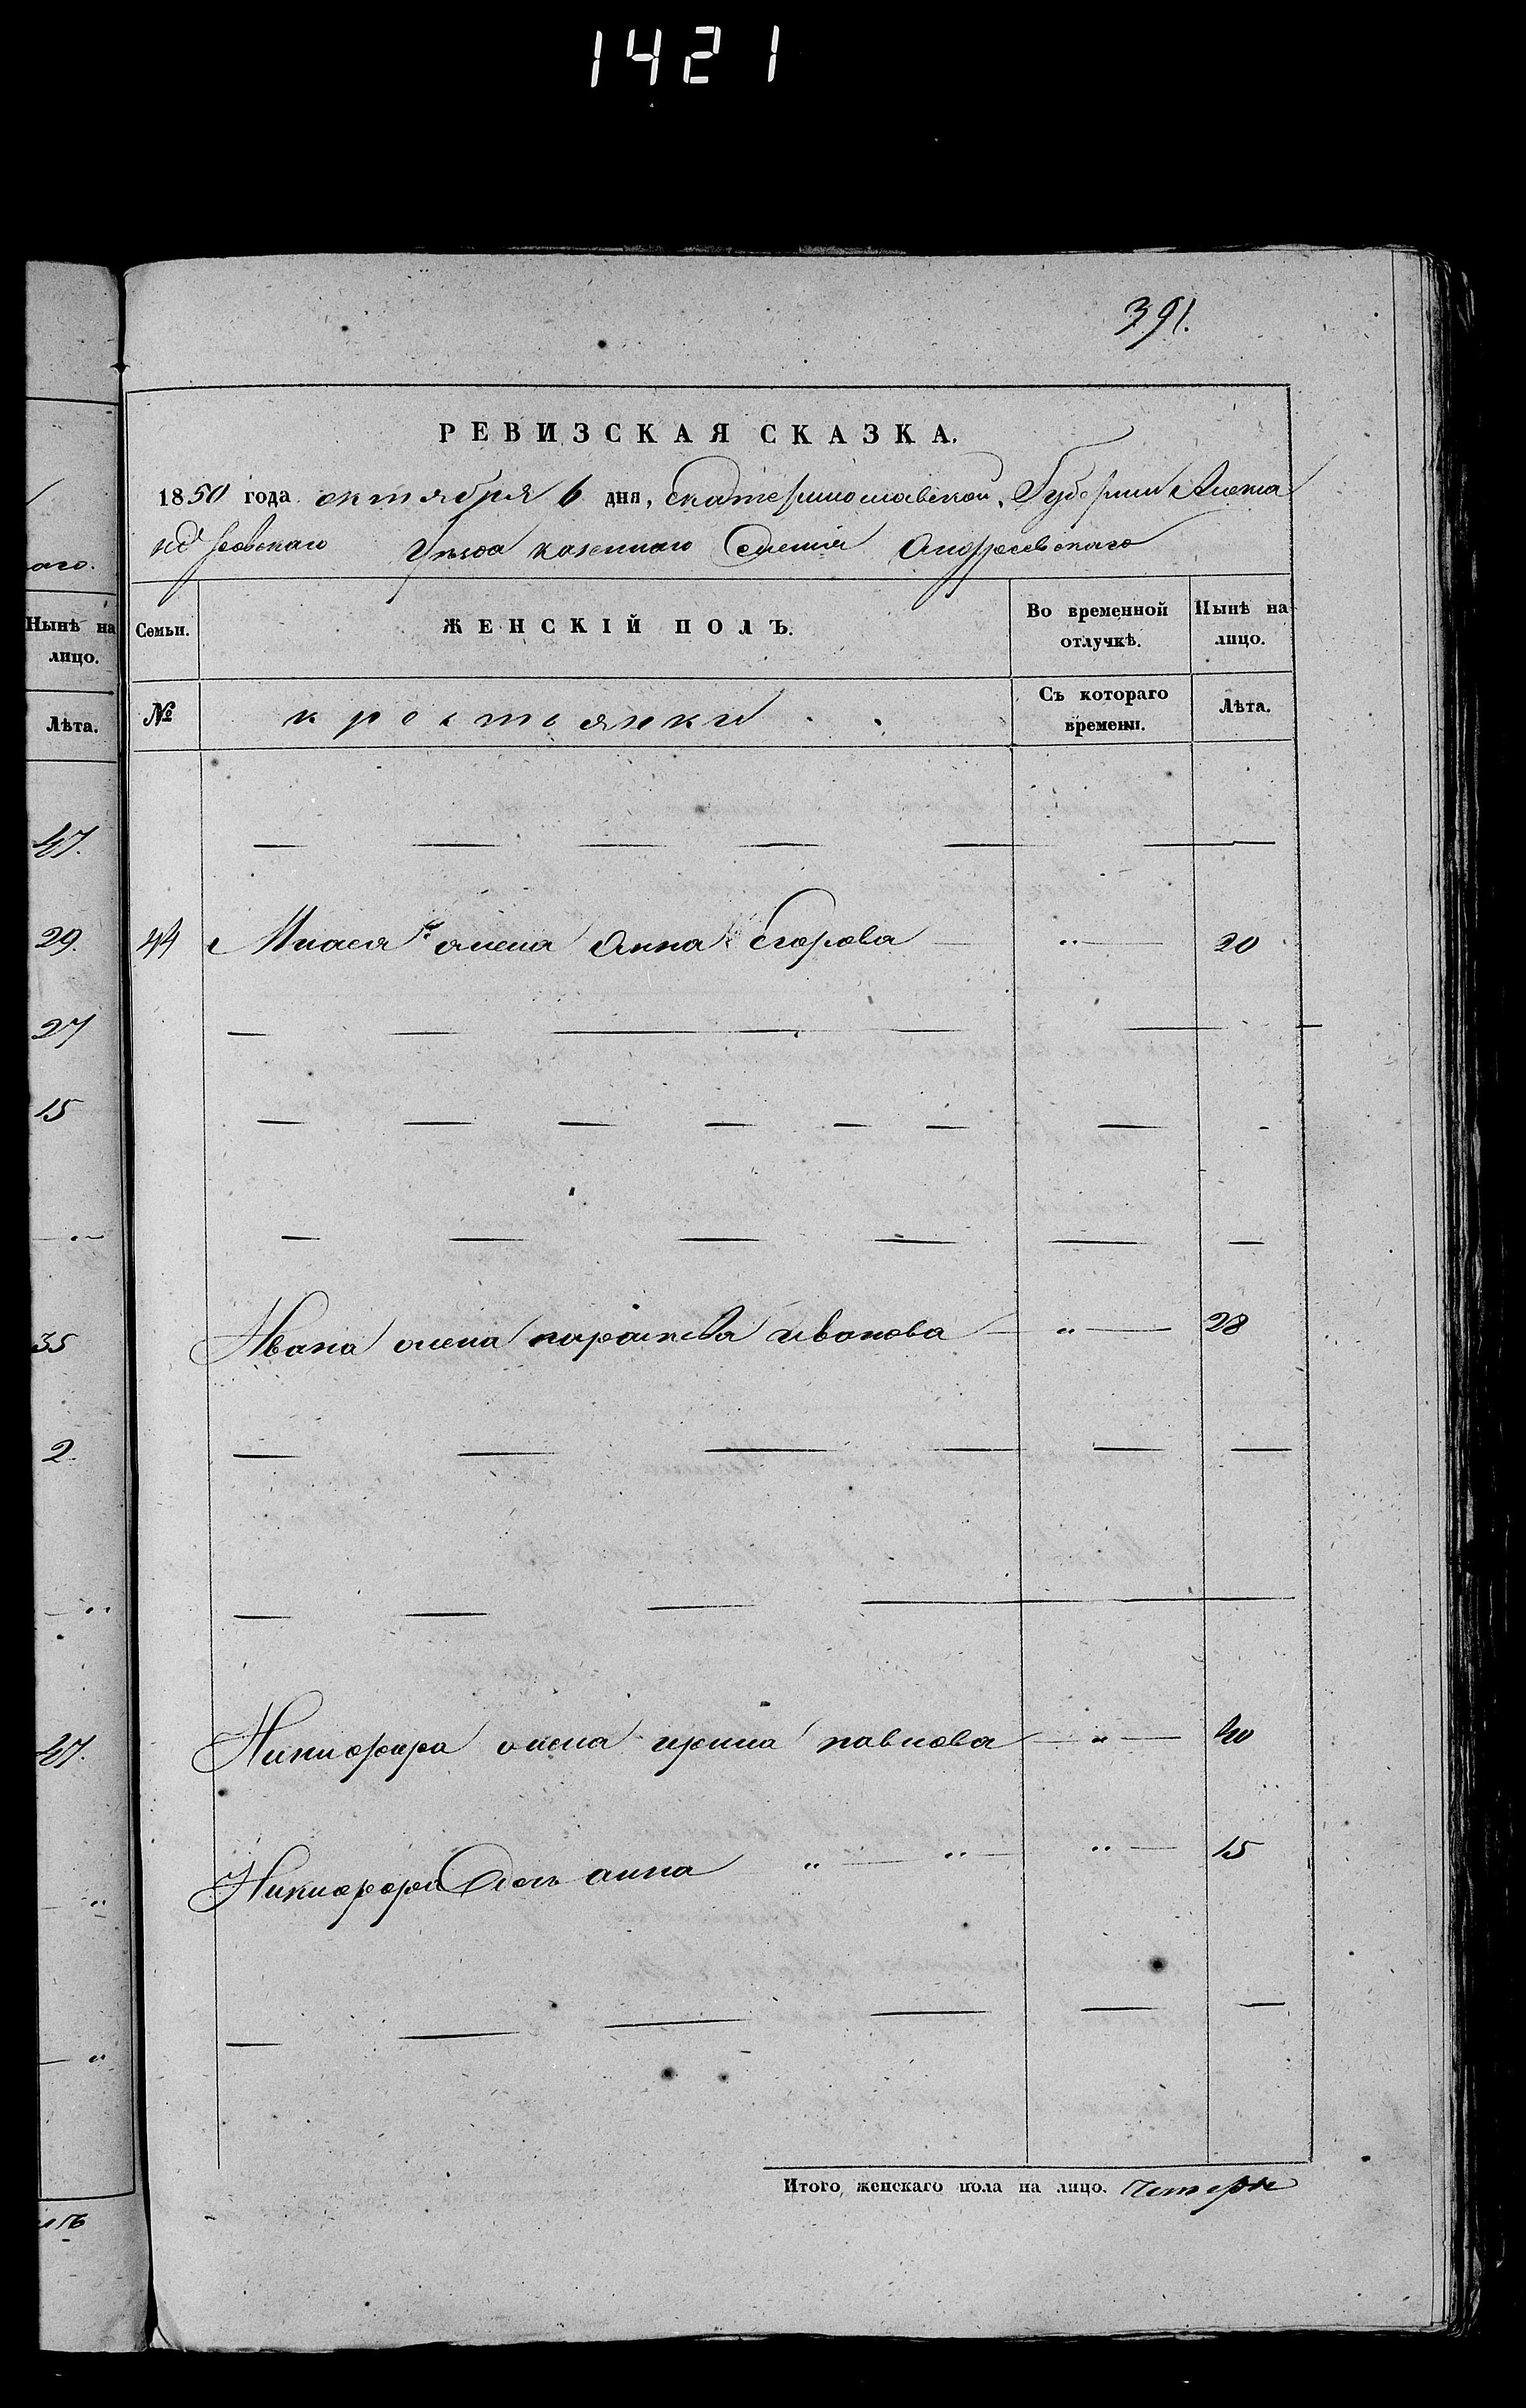 1421
391.
РЕВИЗСКАЯ СКАЗКА.
1850 года октября 6 дня, Екатеринославской Губернии Алекса
ндровскаго Уезда казеннаго Селения Андреевскаго
аго.
Нынѣ на лицо.
Семьи.
ЖЕНСКІЙ ПОЛЪ.
Во временной отлучкѣ.
Нынѣ на лицо.
Лѣта.
№
крестьянки
Съ котораго времени.
Лѣта.
47.
29.
44 жена Анна Егорова — " — 20
27
15
35
Ивана жена парасковя иванова — " — 28
2
47.
Никифора жена ирина павлова — " — 40
Никифора Дочь анна " — " — " — 15
Итого женскаго пола на лицо. Четери